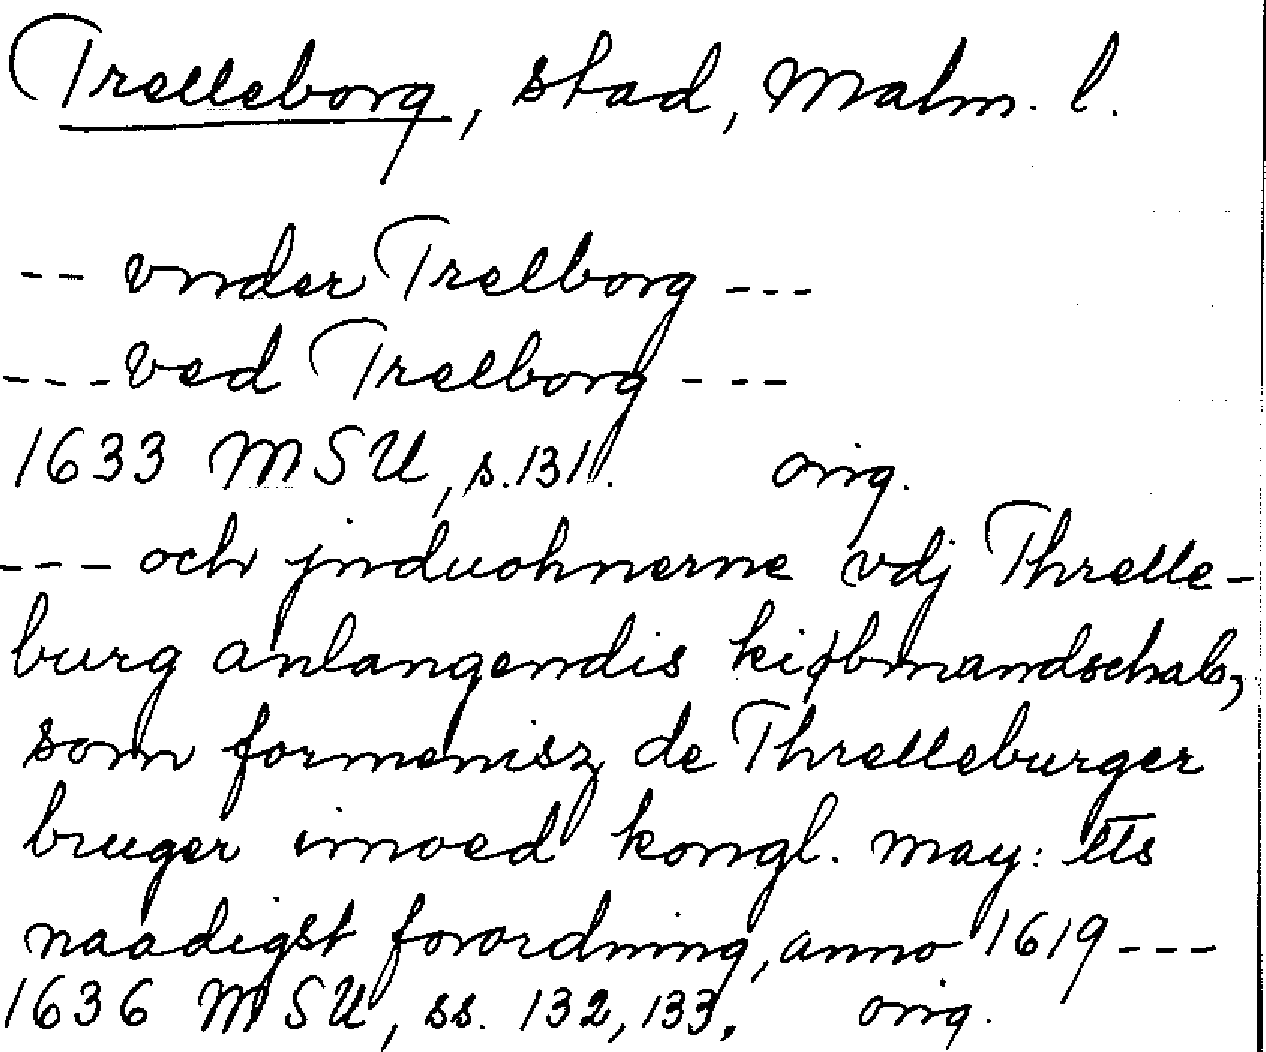 Trelleborg, stad, Malm. l.
-- vnder Trelborg ---
--- ved Trelborg ---
1633 MSU, s. 131. orig.
--- och jnduohnerne vdj Threlle-
burg anlangendis kiøbmandschab,
som formenisz de Threlleburger
bruger imoed kongl. may: tts
naadigst forordning, anno 1619 ---
1636 MSU, ss. 132, 133. orig.